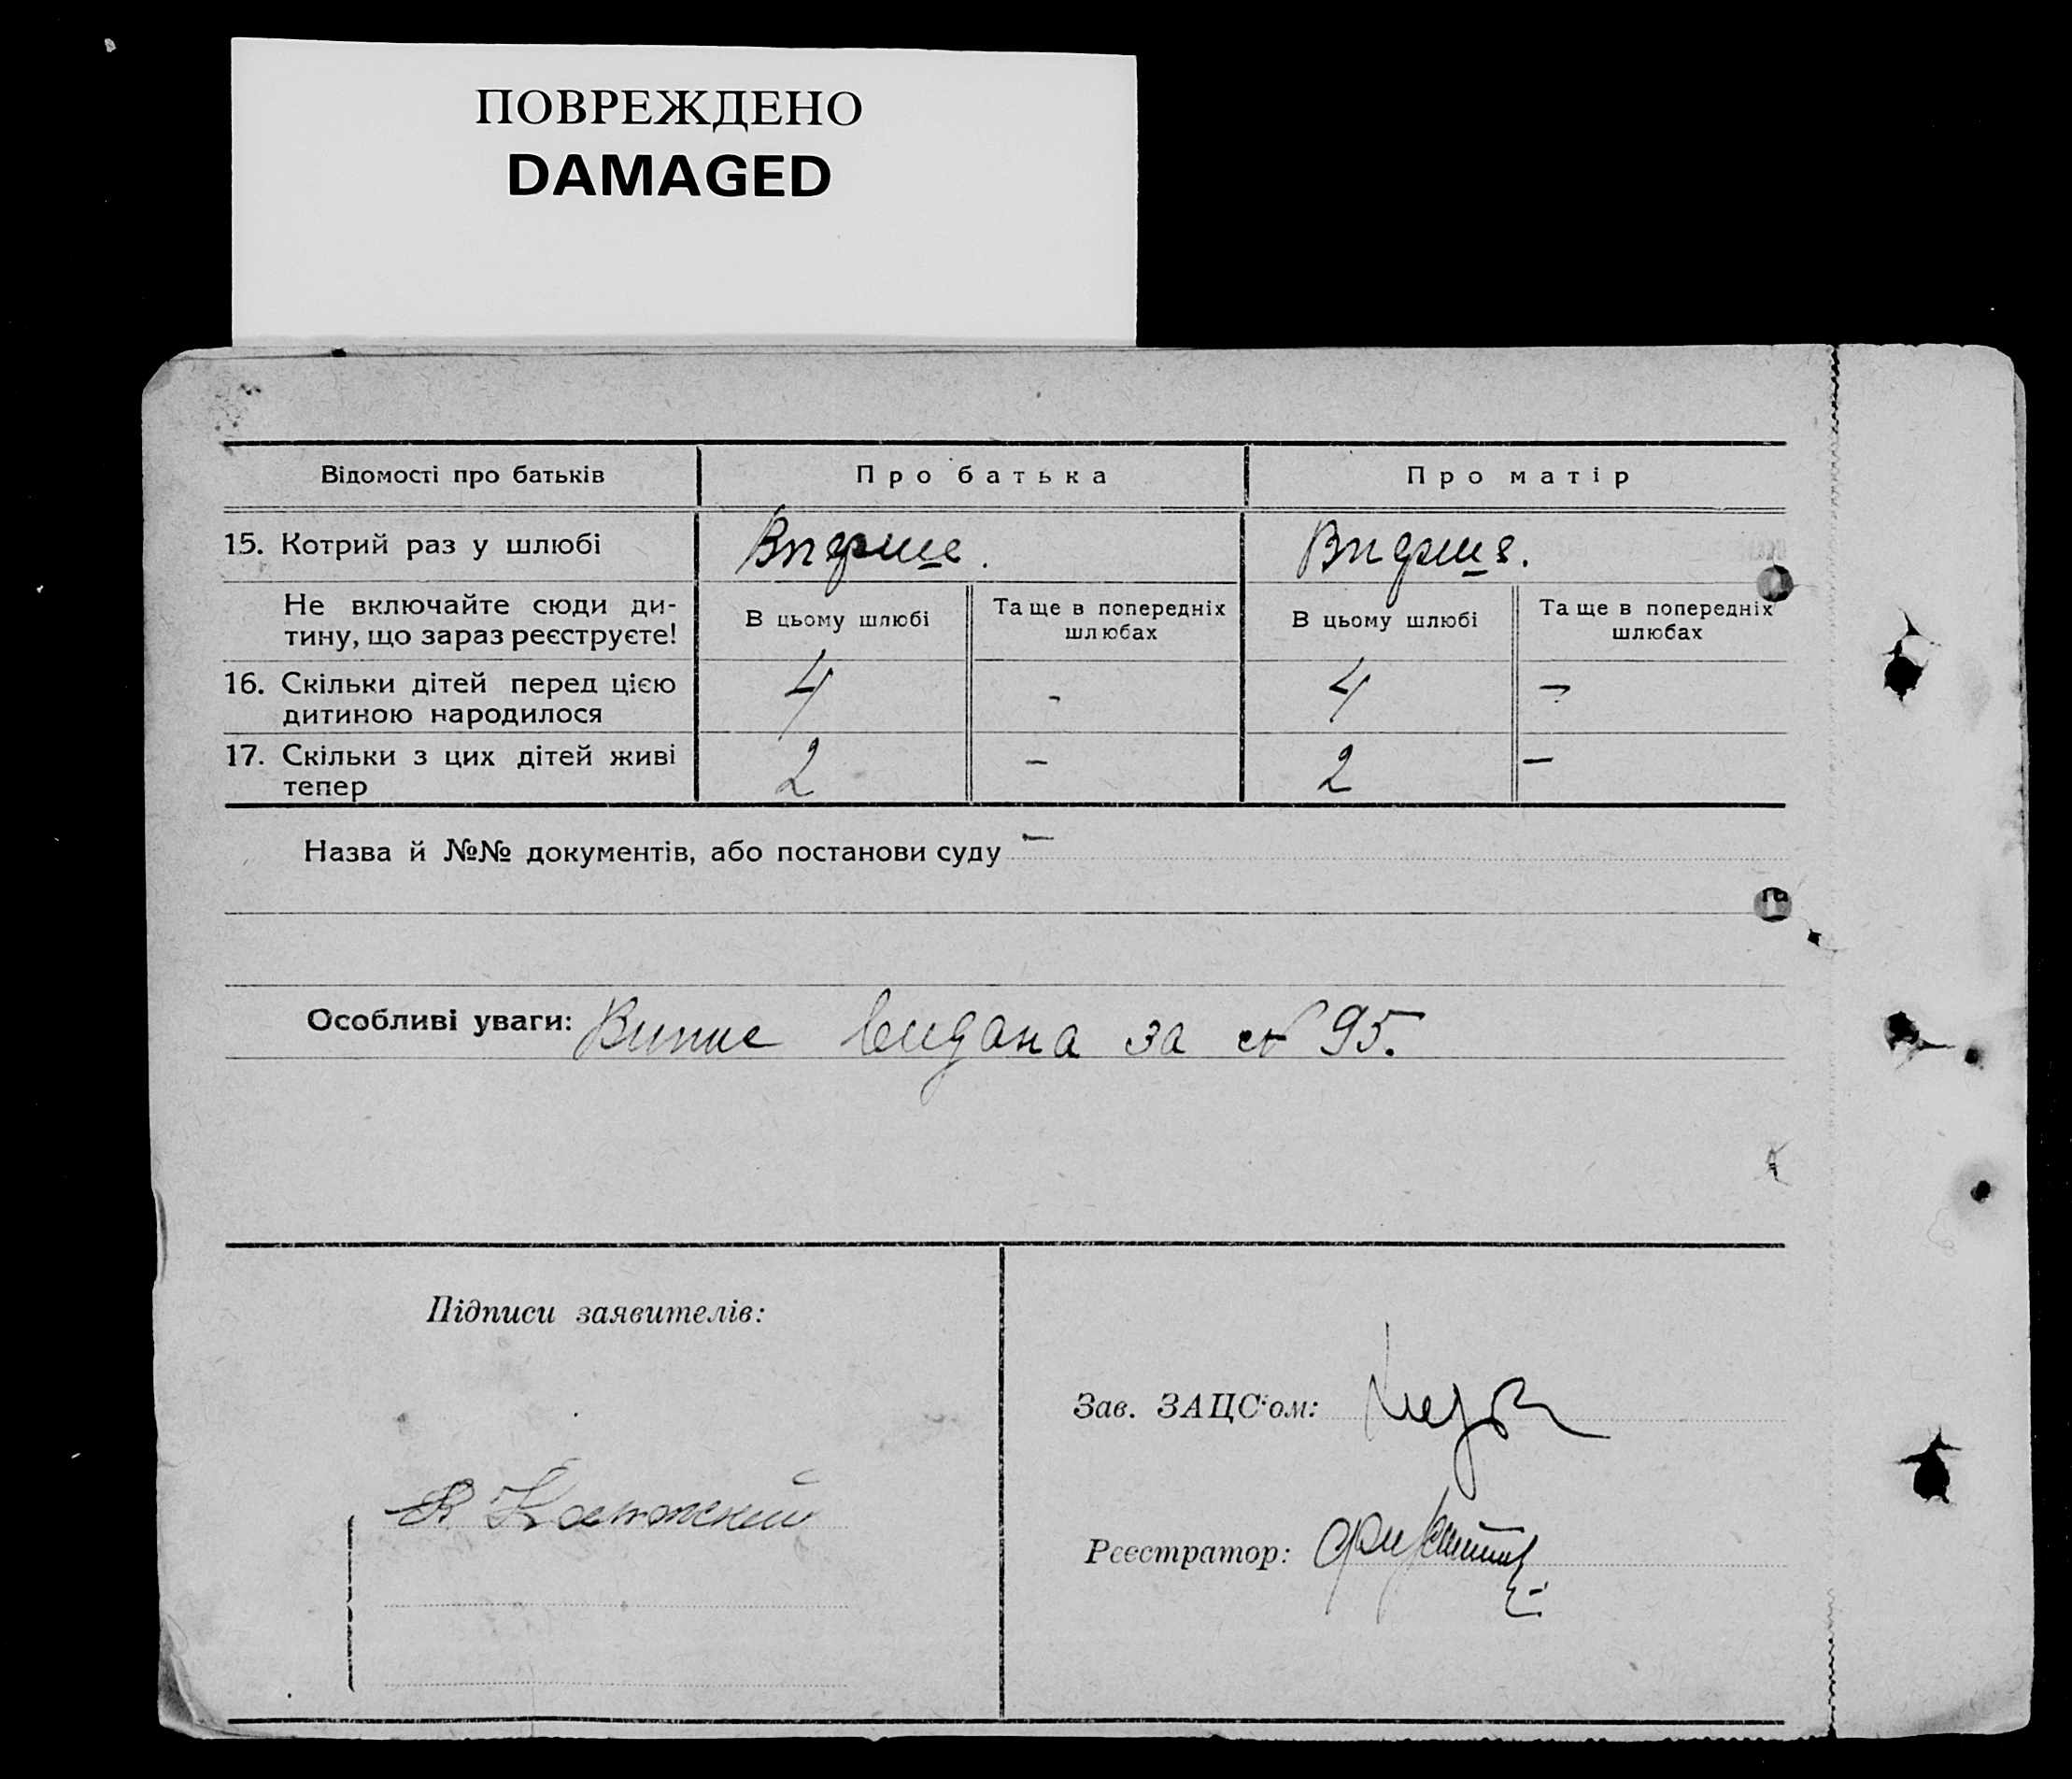 ПОВРЕЖДЕНО
DAMAGED
Відомості про батьків
Про батька
Про матір
15. Котрий раз у шлюбі
Вперше.
Вперше.
Не включайте сюди ди-
тину, що зараз реєструєте!
В цьому шлюбі
Та ще в попередніх
шлюбах
В цьому шлюбі
Та ще в попередніх
шлюбах
16. Скільки дітей перед цією
дитиною народилося
4
-
4
-
17. Скільки з цих дітей живі
тепер
2
-
2
-
Назва й №№ документів, або постанови суду -
Особливі уваги: Випис видана за № 95.
Підписи заявителів:
Зав. ЗАЦС'ом:
Реєстратор: